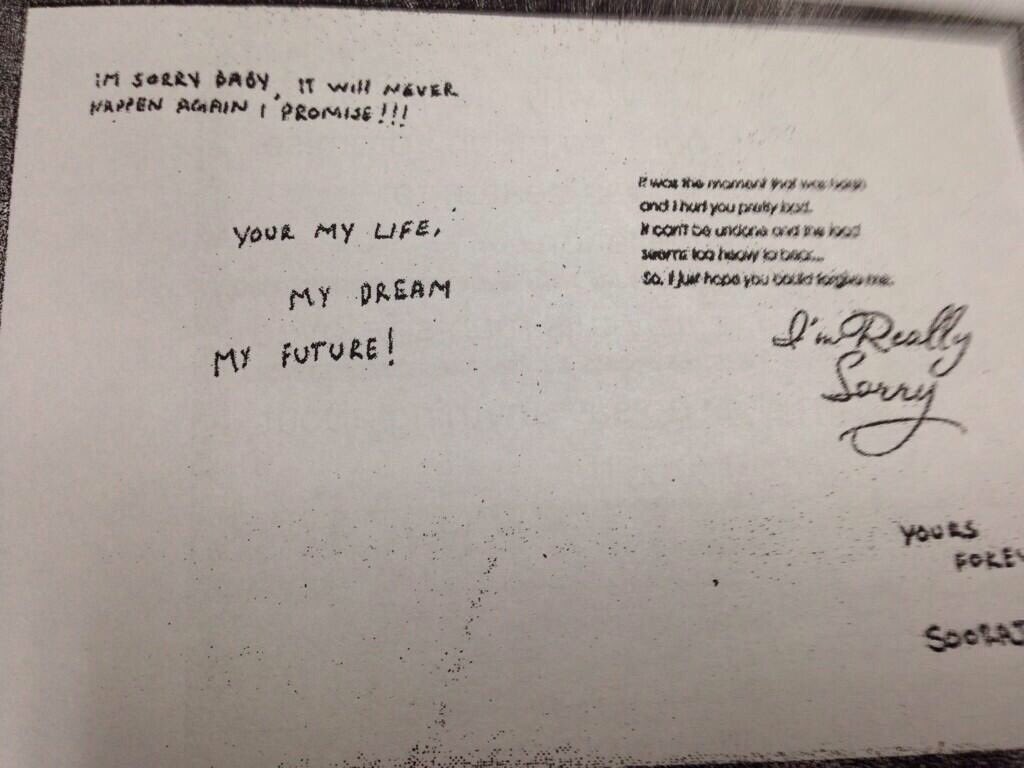 IM SORRY BABY, IT WILL NEVER
HAPPEN AGAIN I PROMISE!!!
YOUR MY LIFE,
MY DREAM
MY FUTURE!
It was the moment that was harsh
and I hurt you pretty bad.
It can't be undone and the load
seems too heavy to bear...
So, I just hope you could forgive me.
I'm Really
Sorry
YOURS
FOREV
SOORAJ